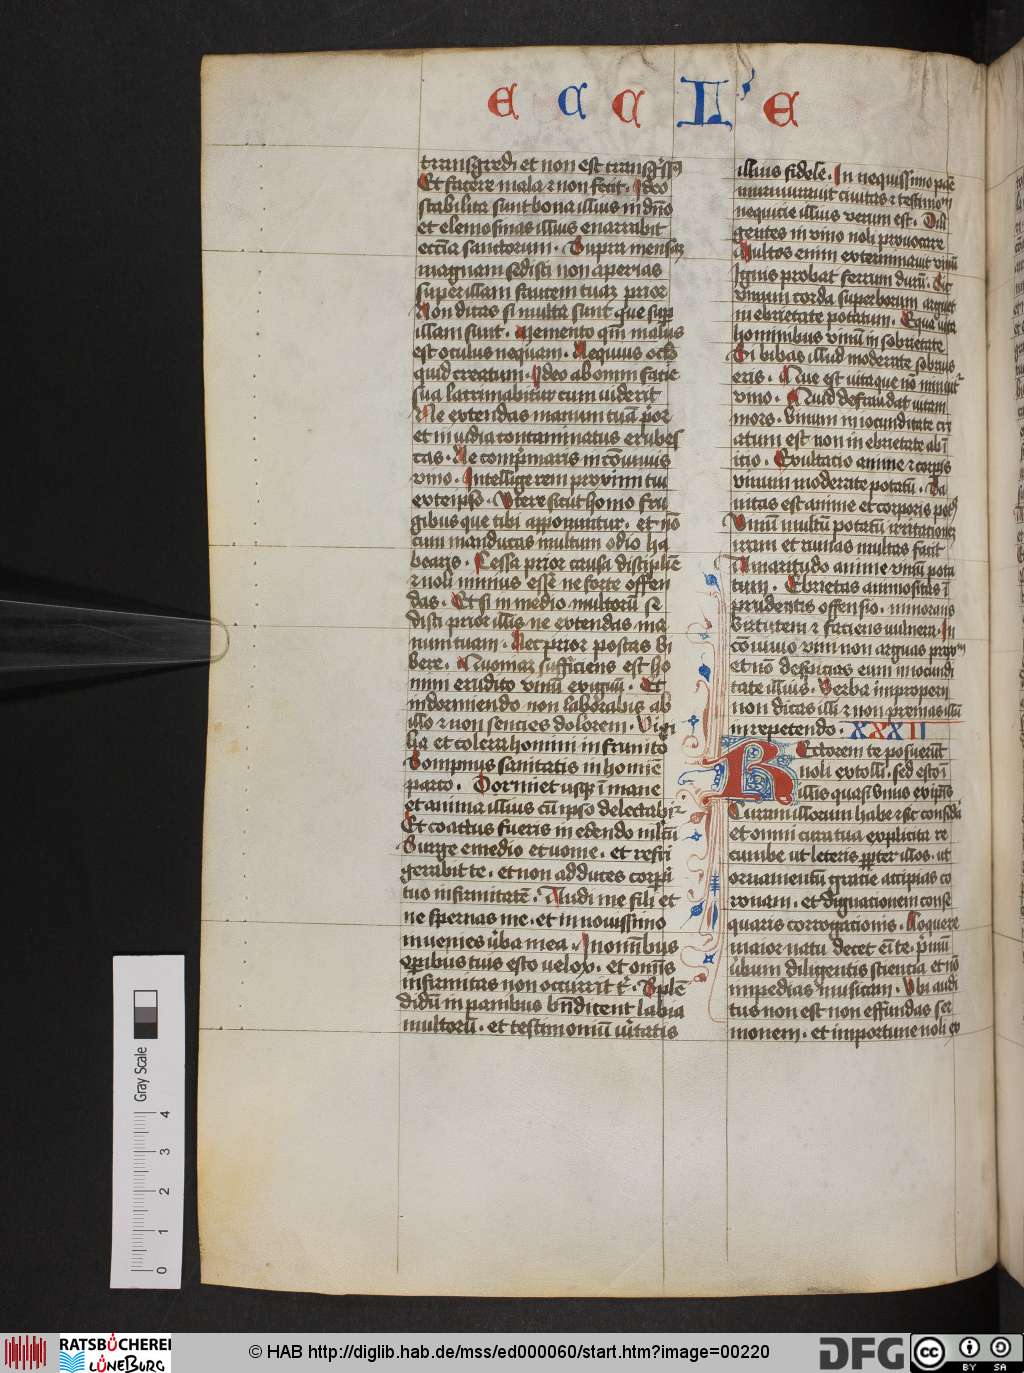 E C C L' E
transgredi et non est transg̾ssꝰ
Et facere mala ⁊ non fecit. Ideo
stabilita sunt bona illius in dn̄o
et elemosinas illius enarrabit
ecc̄ia sanctorum. Supra mensaꝫ
magnam sedisti non aperias
super illam faucem tuaꝫ prior
Non dicas si multa sunt que sup̱
illam sunt. Memento qm̄ malus
est oculus nequam. Nequius oc̄lo
quid creatum. Ideo ab omni facie
sua lacrimabitur cum uiderit
Ne extendas manum tuā p̾or
et inuidia contaminatus erubes
cas. Ne comp̾maris in cōuiuio
vino. Intellige rem proximi tui
ex te ip̄o. Utere sicut homo fru
gibus que tibi apponuntur. et nō
cum manducas multum odio ha
bearis. Cessa prior causa discipline
⁊ noli nimius esse ne forte offen
das. Et si in medio multorū se
disti prior illis ne extendas ma
num tuam. Nec prior poscas bi
bere. Quomar sufficiens est ho
mini erudito vinū exiguū. Et
in dormiendo non laborabis ab
illo ⁊ non sencies dolorem. Vigi
lia et colera homini infrunito
Sompnus sanitatis in homine
parco. Dormiet usqꝫ i mane
et anima illius cū ip̄o delectabit̾
Et coactus fueris in edendo mltū
Surge e medio et uome. et refri
gerabit te. et non adduces corp̱i
tuo infirmitatē. Audi me fili et
ne spernas me. et in nouissimo
inuenies ūba mea. In omībus
op̱ibus tuis esto uelox. et om̄s
infirmitas non occurrit t̾. Splē
didū in panibus bn̄dicent labia
multorū. et testimoniū ū̾itatis
illius fidele. In nequissimo pane
murmurauit ciuitas ⁊ testimoniū
nequicie illius verum est. Dili
gentes in vino noli prouocare
Multos enim exterminauit vinū
Ignis probat ferrum durū. Sic
vinum corda superborum arguet
in ebrietate potatum. Equa uita
hominibus vinū in sobrietate
Si bibas illud moderate sobrius
eris. Que est uita que nō minuit̾
vino. Quid defraudat uitam
mors. Vinum in iocunditate cre
atum est non in ebrietate ab i
icio. Exultatio anime ⁊ corpis
vinum moderate potatū. Sa
nitas est anime et corporis potꝰ
Vinū multū potatū irritationeꝫ
iram et ruinas multas facit
Amaritudo anime vinū pota
tum. Ebrietas animositas i
prudentis offensio. minorans
virtutem ⁊ faciens uulnera. In
cōuiuio vini non arguas proxm̄
et nō despicias eum in iocundi
tate illius. Verba improperii
non dicas illi ⁊ non premas illū
in repetendo. XXXII
Rectorem te posuerūt
noli extolli. sed esto i
illis quasi vnus ex ip̄is
Curam illorum habe ⁊ sic consid̾a
et omni cura tua explicita re
cumbe ut leteris p̱pter illos. ut
ornamentū gracie accipias co
ronam. et dignationem conse
quaris corrogationis. Loquere
maior natu decet ei te. p̾mū
ūbum diligentis sciencia et nō
impedias musicam. Ubi audi
tus non est non effundas ser
monem. et importune noli ex
Gray Scale
0 1 2 3 4
RATSBÜCHEREI
LÜNEBURG
© HAB http://diglib.hab.de/mss/ed000060/start.htm?image=00220
DFG
cc BY SA